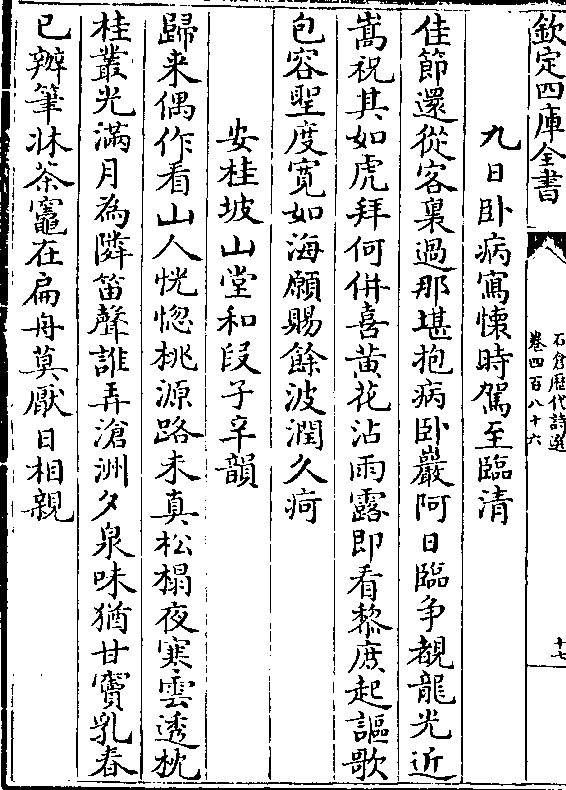 欽定四庫全書
石倉歴代詩選
卷四百八十六
十七
九日卧病寫懐時駕至臨清
佳節還從客裏過那堪抱病卧巖阿日臨争覩龍光近
嵩祝其如虎拜何併喜黄花沾雨露即看黎庶起謳歌
包容聖度寛如海願賜餘波潤久疴
安桂坡山堂和段子辛韻
歸来偶作看山人恍惚桃源路未真松榻夜寒雲透枕
桂叢光滿月為隣笛聲誰弄滄洲夕泉味猶甘竇乳春
已辦筆牀茶竈在扁舟莫厭日相親